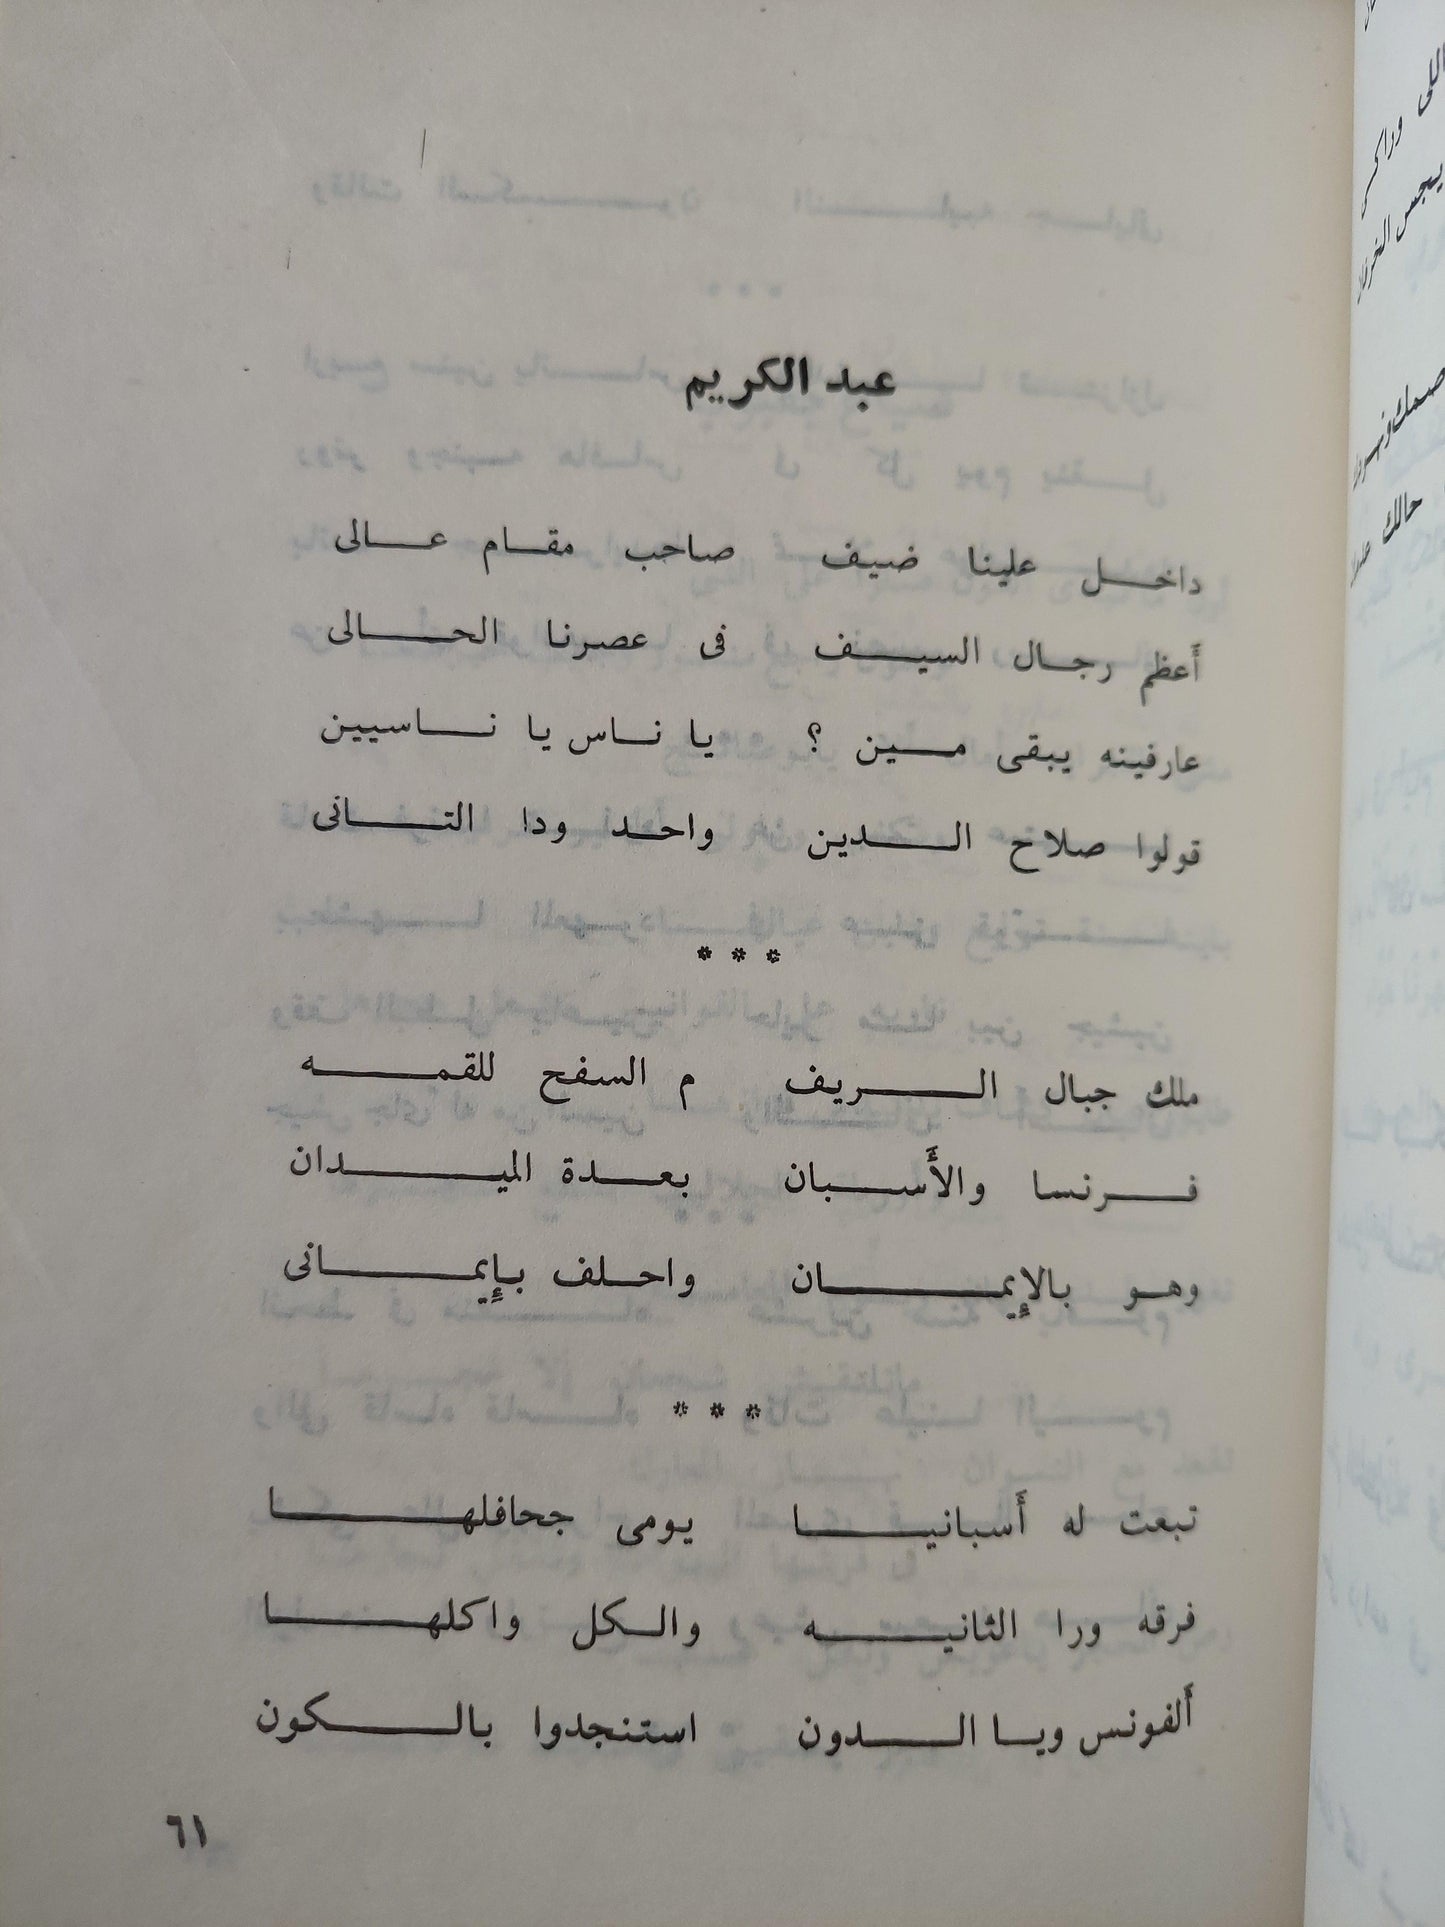 عبد الكريم
داخل علينا ضيف صاحب مقام عالى
أعظم رجال السيف فى عصرنا الحالى
عارفينه يبقى مين ؟ يا ناس يا ناسيين
قولوا صلاح الدين واحد ودا التانى
***
ملك جبال الريف م السفح للقمه
فرنسا والأسبان بعدة الميدان
وهو بالإيمان واحلف بإيمانى
***
تبعت له أسبانيا يومى جحافلها
فرقه ورا الثانيه والكل واكلها
ألفونس ويا الدون استنجدوا بالكون
٦١
اللى وراكى
حالك